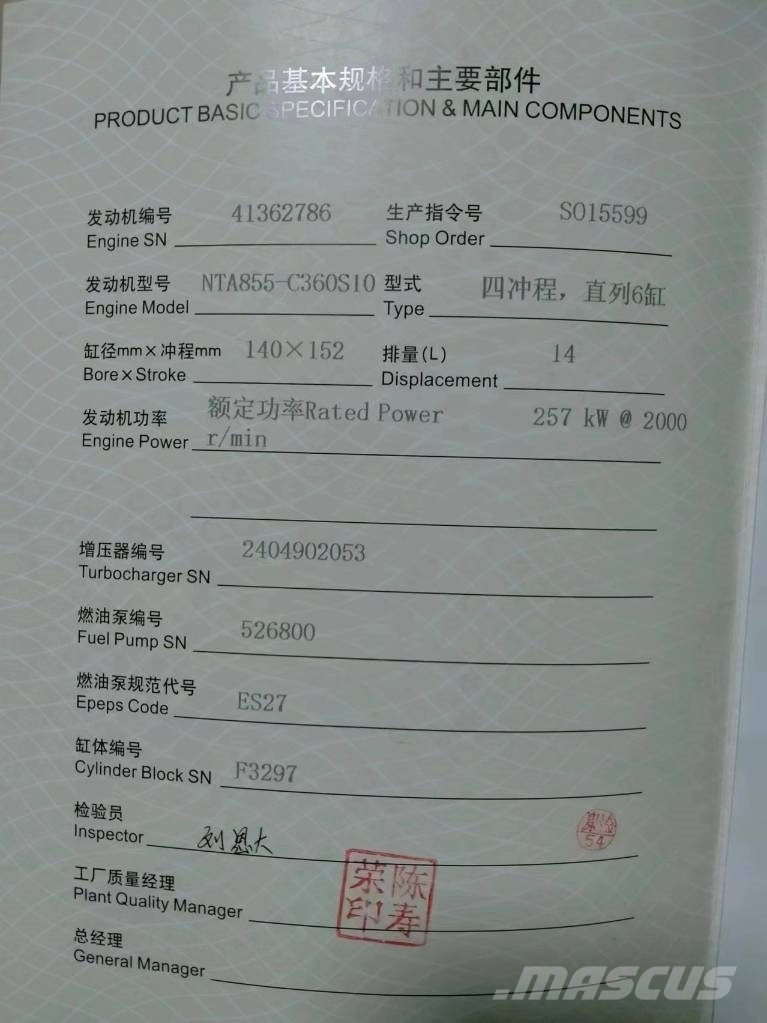 产品基本规格和主要部件
PRODUCT BASIC SPECIFICATION & MAIN COMPONENTS
发动机编号 41362786 生产指令号 SO15599
Engine SN Shop Order
发动机型号 NTA855-C360S10 型式 四冲程，直列6缸
Engine Model Type
缸径mm×冲程mm 140×152 排量(L) 14
Bore×Stroke Displacement
发动机功率 额定功率Rated Power 257 kW @ 2000
Engine Power r/min
增压器编号 2404902053
Turbocharger SN
燃油泵编号 526800
Fuel Pump SN
燃油泵规范代号 ES27
Epeps Code
缸体编号 F3297
Cylinder Block SN
检验员
Inspector 刘恩大
54
工厂质量经理
Plant Quality Manager
陈寿荣印
总经理
General Manager
MASCUS